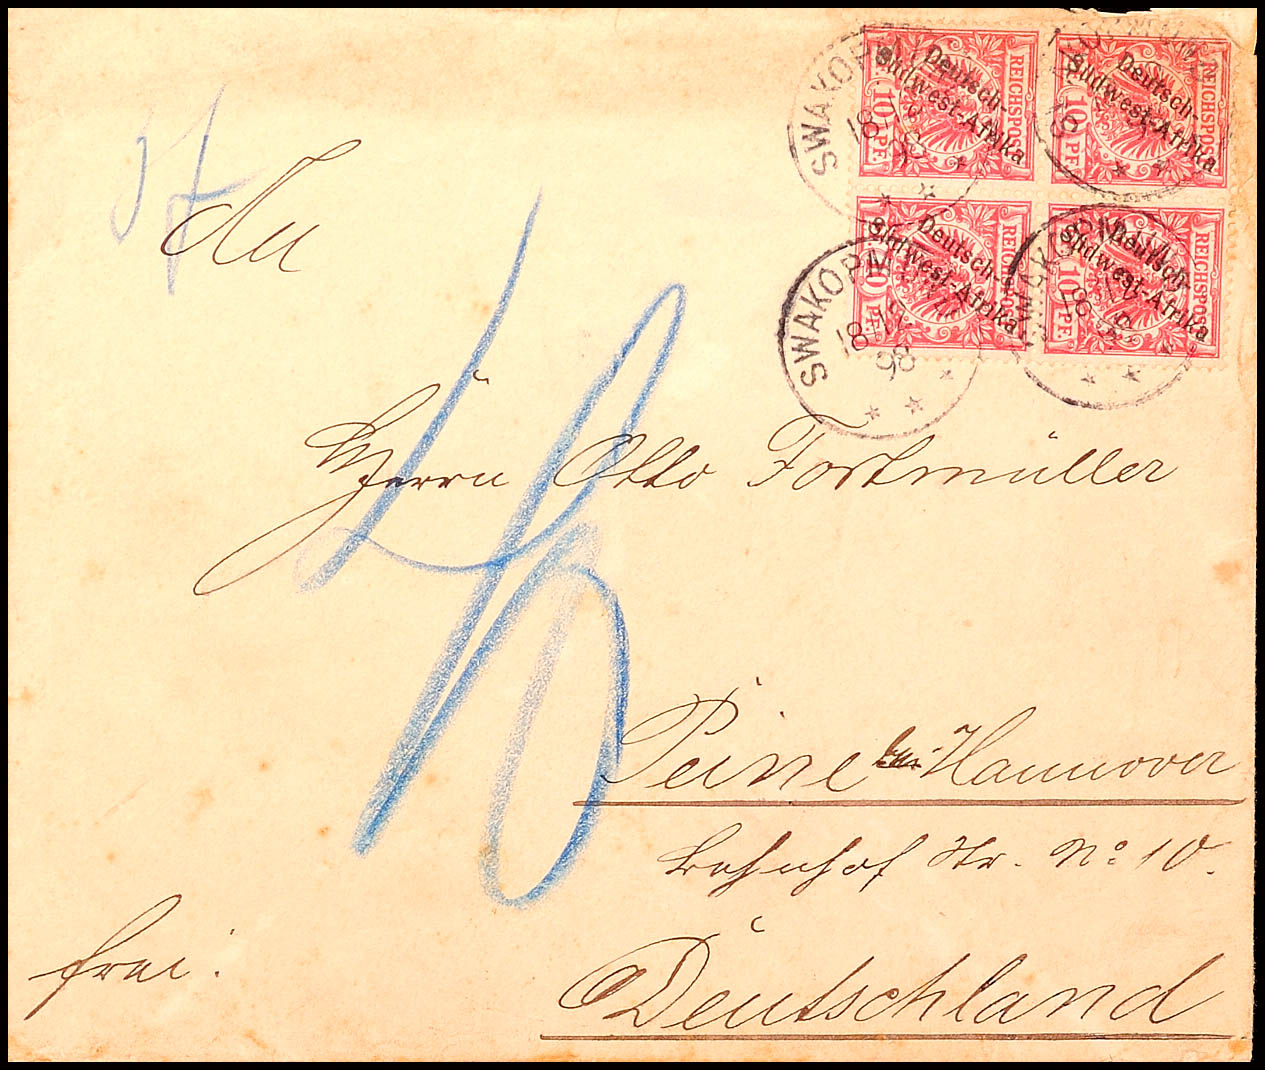 REICHSPOST
10 PF.
Deutsch-
Südwest-Afrika
REICHSPOST
10 PF.
Deutsch-
Südwest-Afrika
REICHSPOST
10 PF.
Deutsch-
Südwest-Afrika
REICHSPOST
10 PF.
Deutsch-
Südwest-Afrika
SWAKOPMUND
18
98
SWAKOPMUND
18
98
An
Herrn Otto Fortmüller
Peine bei Hannover
Bahnhof Str. No 10.
Deutschland
frei.